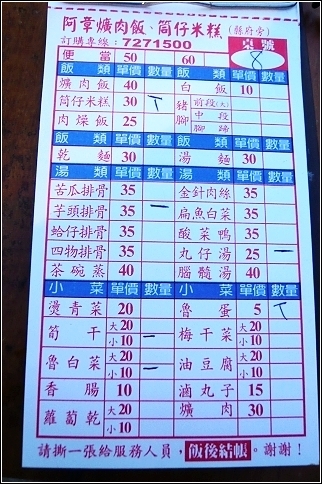 阿章爌肉飯、筒仔米糕(縣府旁)
訂購專線:7271500 桌號
便當 50 60 8
飯類 單價 數量 飯類 單價 數量
爌肉飯 40 白飯 10
筒仔米糕 30 豬腳 前段(大)
肉燥飯 25 中段
腳蹄
飯類 單價 數量 飯類 單價 數量
乾麵 30 湯麵 30
湯類 單價 數量 湯類 單價 數量
苦瓜排骨 35 金針肉絲 35
芋頭排骨 35 一 扁魚白菜 35
蛤仔排骨 35 酸菜鴨 35
四物排骨 35 丸仔湯 25 一
茶碗蒸 40 腦髓湯 40
小菜 單價 數量 小菜 單價 數量
燙青菜 大20 魯蛋 5
筍干 大20 小10 一 梅干菜 大20 小10
魯白菜 大20 小10 一 油豆腐 大20 小10
香腸 10 滷丸子 15
蘿蔔乾 大20 小10 爌肉 30
請撕一張給服務人員,飯後結帳。謝謝!